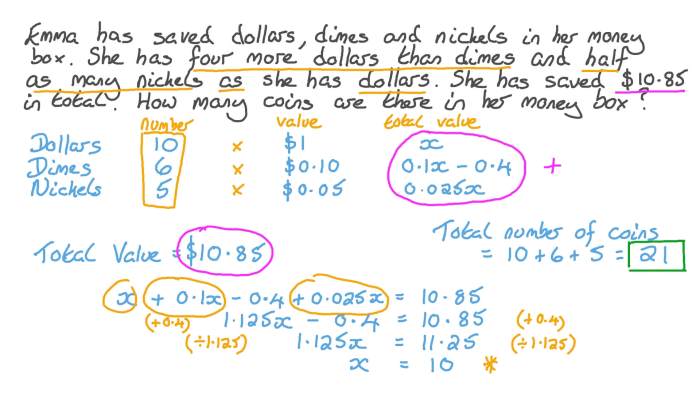 Emma has saved dollars, dimes and nickels in her money
box. She has four more dollars than dimes and half
as many nickels as she has dollars. She has saved $10.85
in total. How many coins are there in her money box?
number value total value
Dollars 10 × $1 x
Dimes 6 × $0.10 0.1x - 0.4 +
Nickels 5 × $0.05 0.025x
Total number of coins
Total Value = $10.85 = 10 + 6 + 5 = 21
x + 0.1x - 0.4 + 0.025x = 10.85
(+0.4) 1.125x - 0.4 = 10.85 (+0.4)
(÷1.125) 1.125x = 11.25 (÷1.125)
x = 10 *